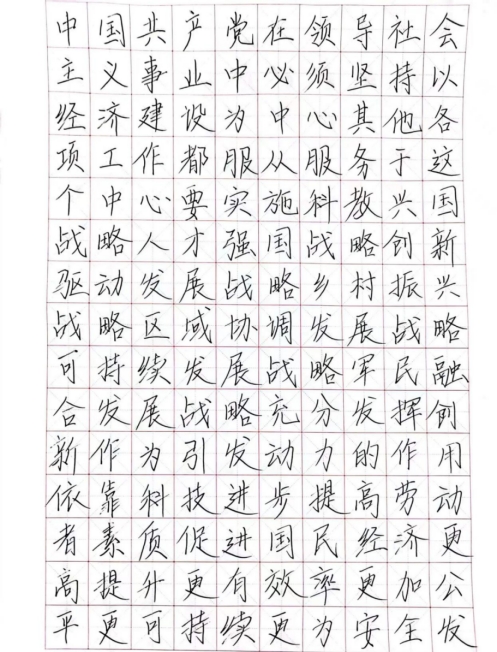 中国共产党在领导社会
主义事业中必须坚持以
经济建设为中心其他各
项工作都服从服务于这
个中心要实施科教兴国
战略人才强国战略创新
驱动发展战略乡村振兴
战略区域协调发展战略
可持续发展战略军民融
合发展战略充分发挥创
新作为引发动力的作用
依靠科技进步提高劳动
者素质促进国民经济更
高提升更有效率更加公
平更可持续更为安全发